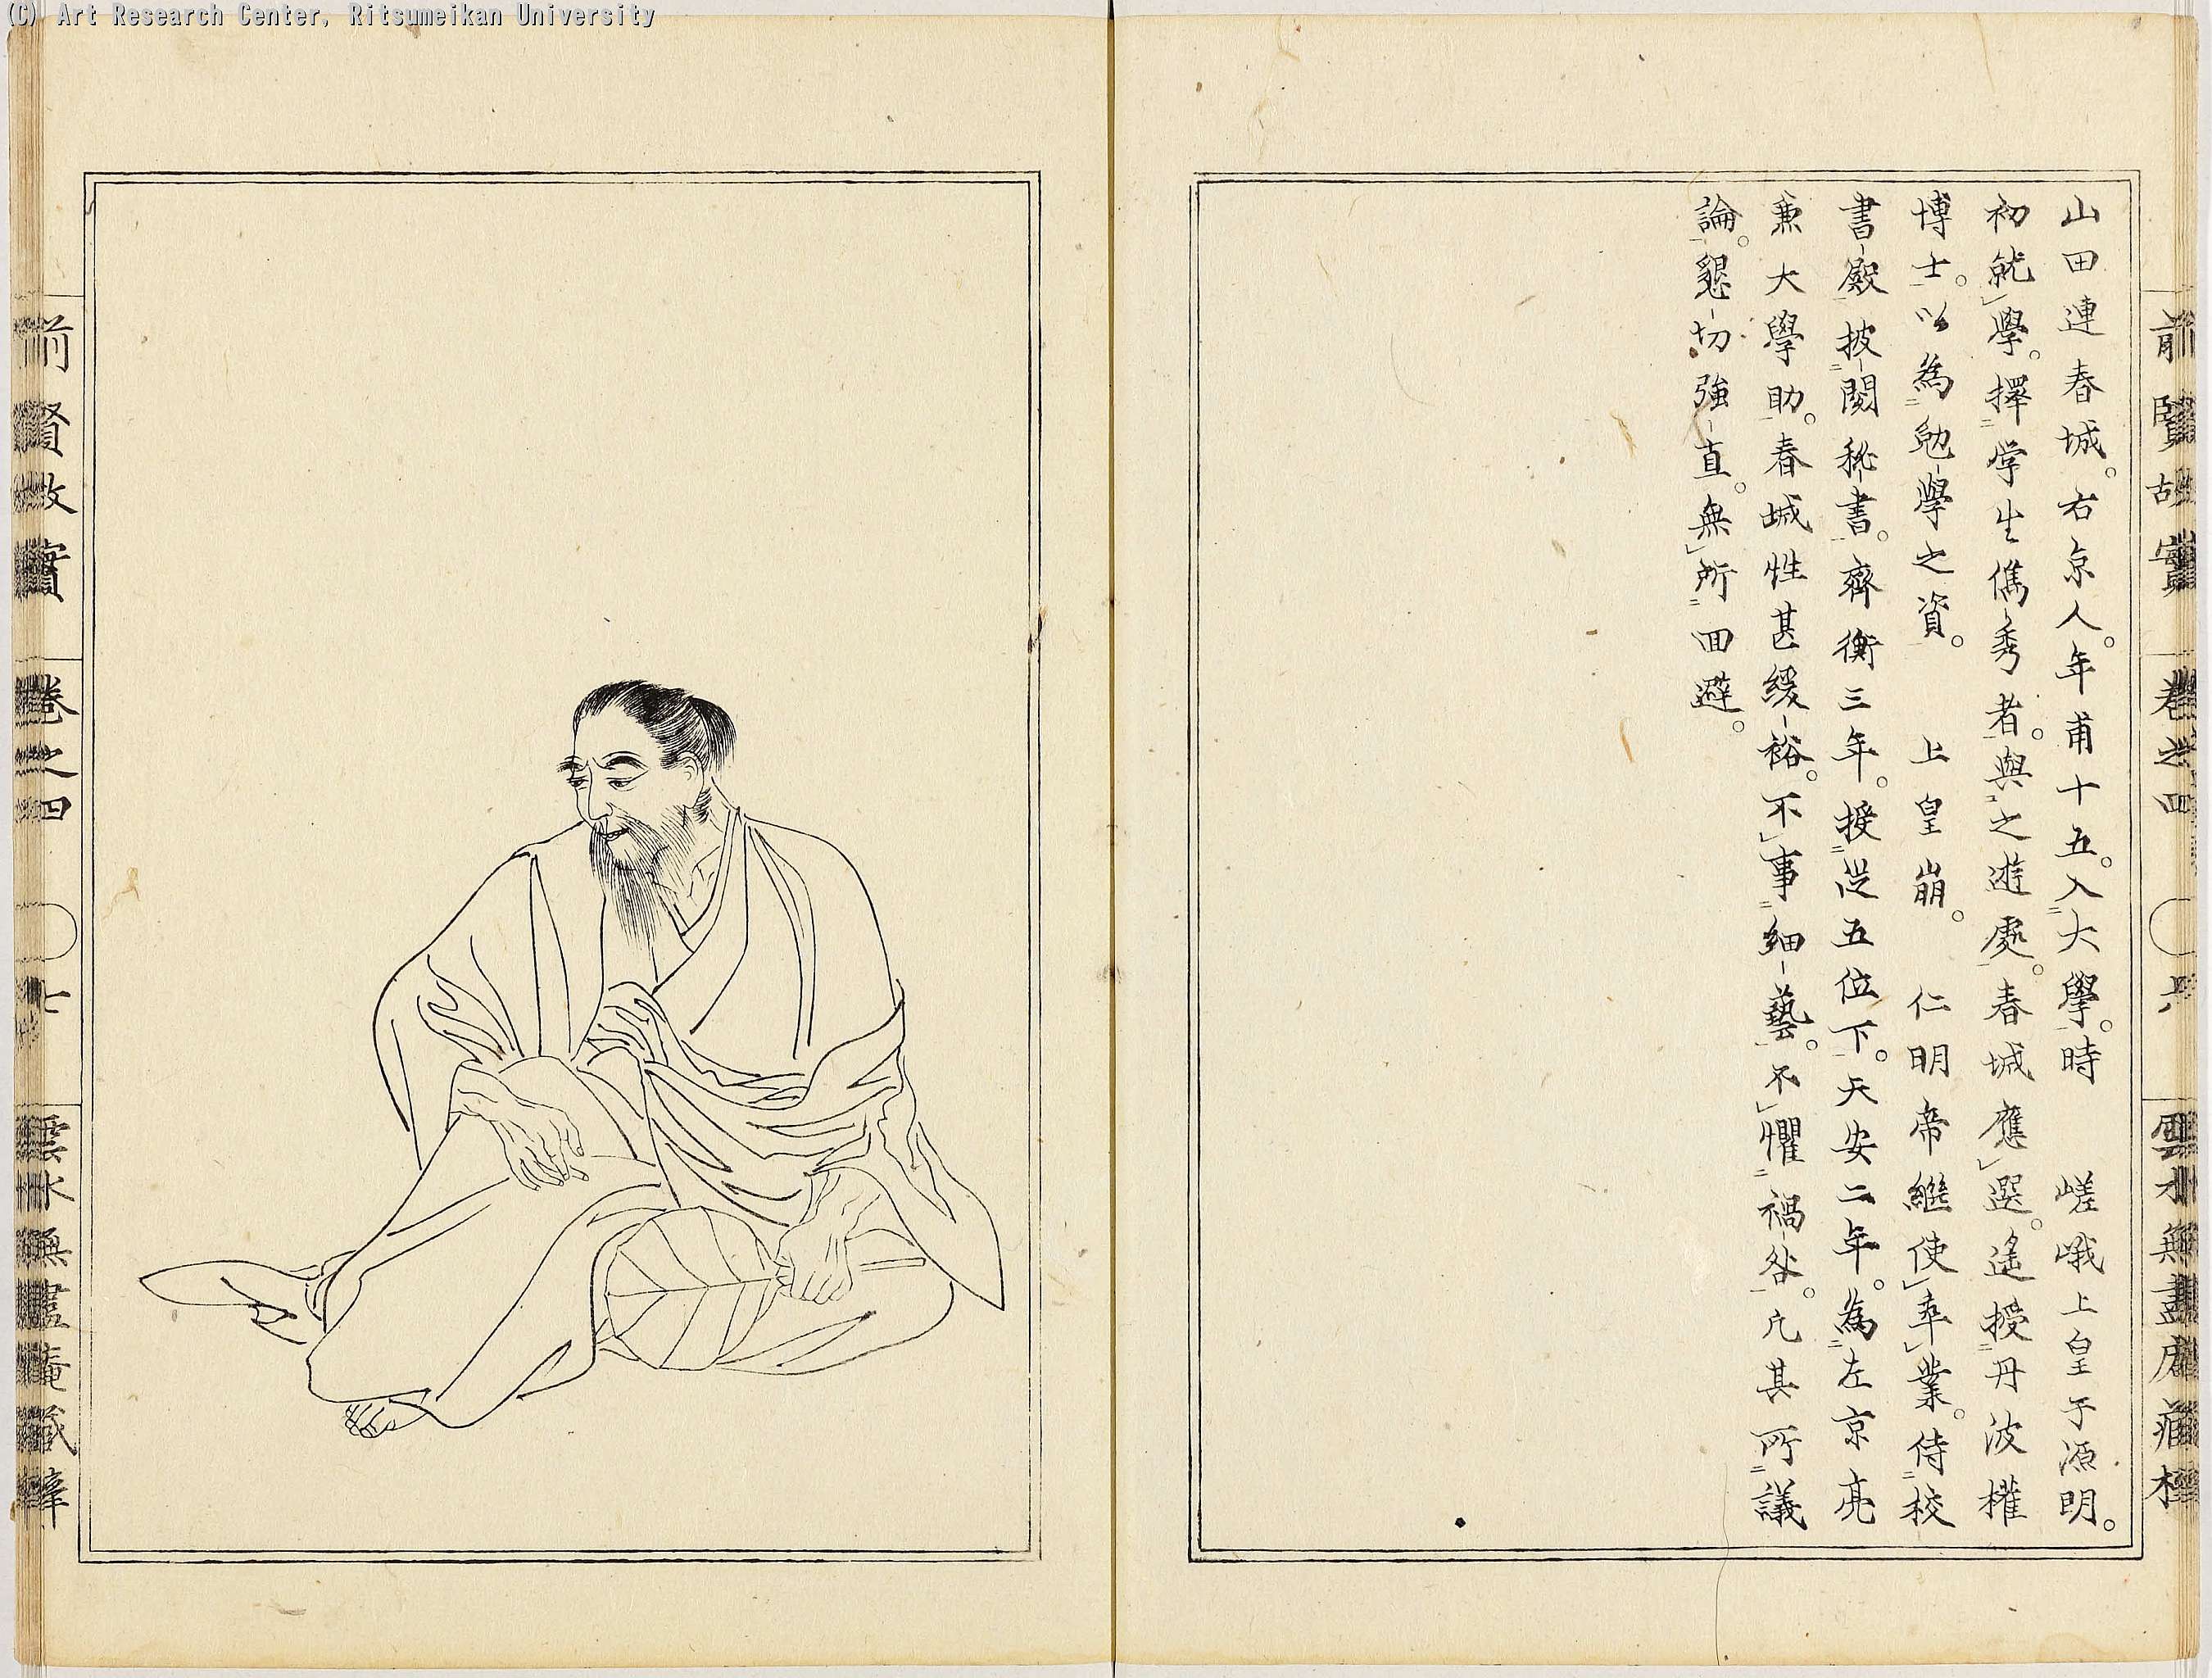 (C) Art Research Center, Ritsumeikan University
山田連春城。右京人。年甫十五。入大學。時 嵯峨上皇子源明。
初就學。擇学生儁秀者。與之遊處。春城應選。遙授丹波權
博士。以為勉學之資。 上皇崩。 仁明帝繼使卒業。侍校
書殿披閲秘書。齊衡三年。授従五位下。天安二年。為左京亮
兼大學助。春城性甚緩裕。不事細藝。不懼禍咎。凡其所議
論。懇切強直。無所囬避。
前賢故實 卷之四 六 雲水無盡庵藏
前賢故實 卷之四 七 雲水無盡庵藏梓